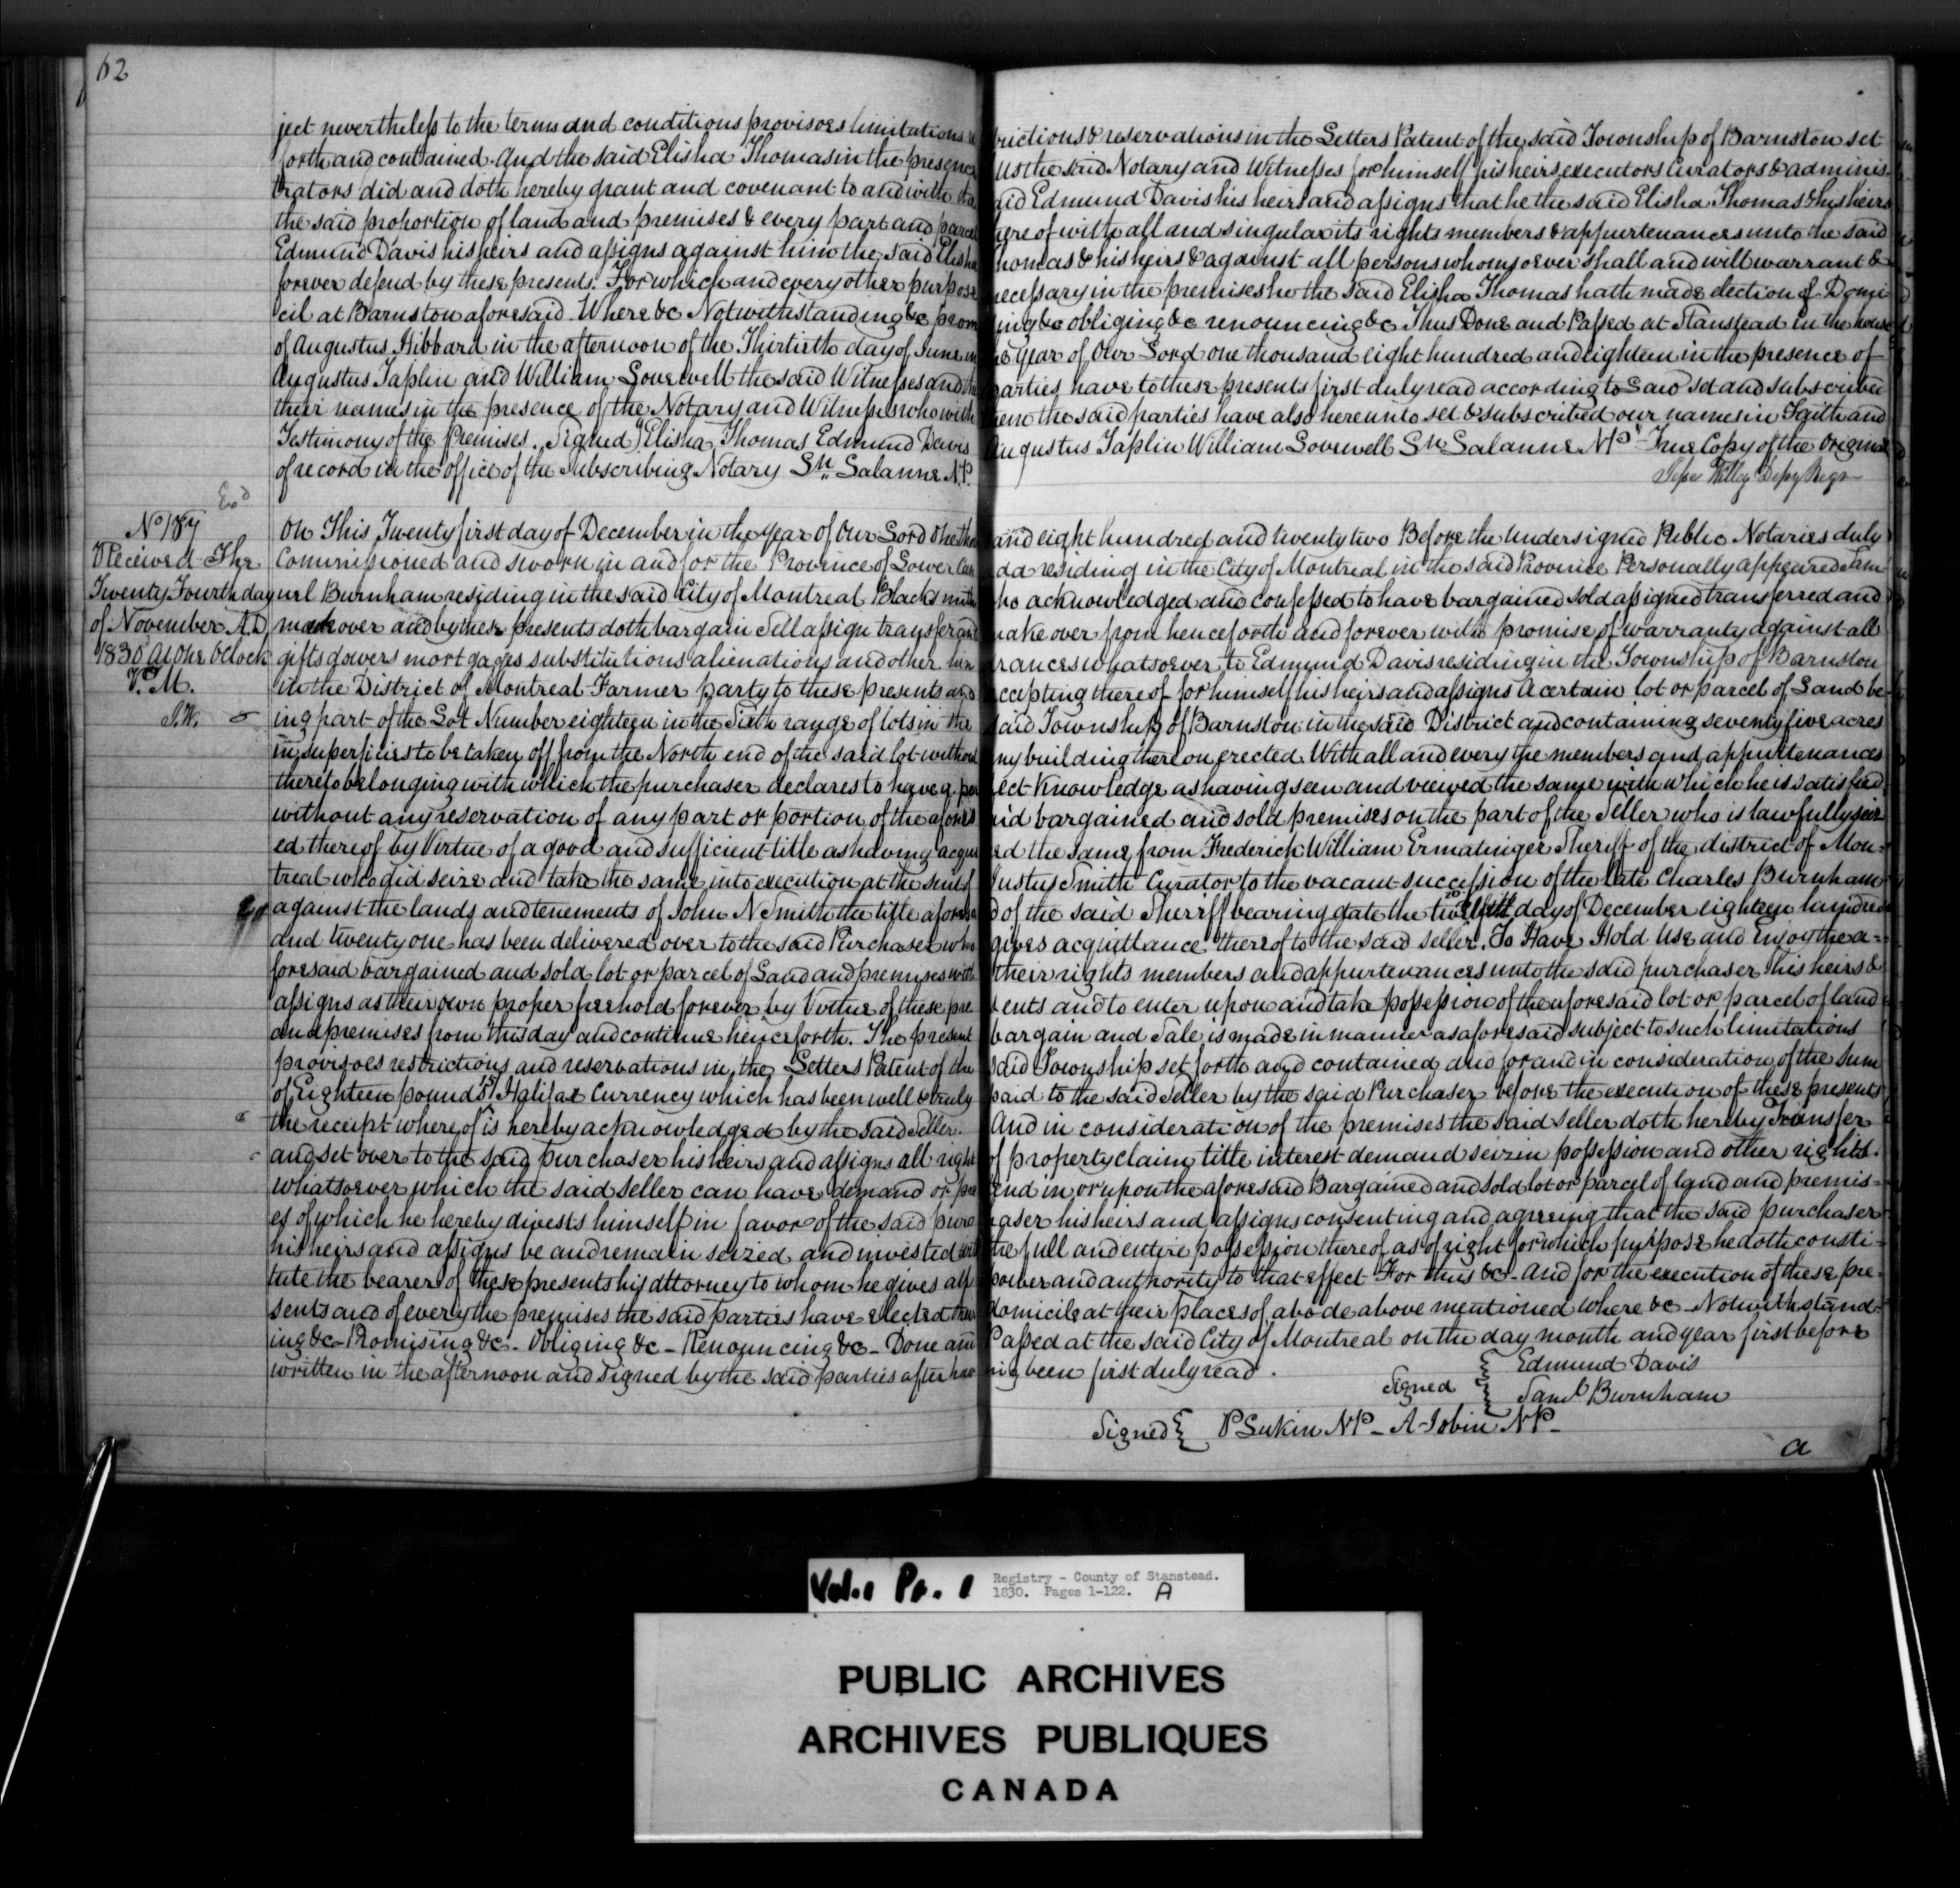 62
ject nevertheless to the terms and conditions provisoes limitations rictions & reservations in the Letters Patent of the said Township of Barnston set
forth and contained. And the said Elisha Thomas in the presence us the said Notary and Witnesses for himself his heirs executors Curators & adminis-
trators did and doth hereby grant and covenant to and with the said Edmund Davis his heirs and assigns that he the said Elisha Thomas & his heirs
the said proportion of land and premises & every part and parcel hereof with all and singular its rights members & appurtenances unto the said
Edmund Davis his heirs and assigns against him the said Elisha Thomas & his heirs & against all persons whomsoever shall and will warrant &
forever defend by these presents. For which and every other purpose necessary in the premises he the said Elisha Thomas hath made election of Domi
cil at Barnston aforesaid. Where &c Notwithstanding &c promising &c obliging &c renouncing &c Thus Done and Passed at Stanstead in the house
of Augustus Hibbard in the afternoon of the Thirtieth day of June in the year of Our Lord one thousand eight hundred and eighteen in the presence of
Augustus Taplin and William Lovewell the said Witnesses and the parties have to these presents first duly read according to Law set and subscribed
their names in the presence of the Notary and Witnesses who with them the said parties have also hereunto set & subscribed our names in Faith and
Testimony of the Premises. Signed Elisha Thomas Edmund Davis Augustus Taplin William Lovewell Sn Lalanne NP. True Copy of the Original
of record in the office of the Subscribing Notary Sn Lalanne N.P.
Willey Depy Regr
No 187
Received The
Twenty Fourth day
of November A.D.
1830 at One OClock
P.M.
On This Twenty first day of December in the Year of Our Lord One thousand eight hundred and twenty two Before the Undersigned Public Notaries duly
Commissioned and sworn in and for the Province of Lower Canada residing in the City of Montreal in the said Province Personally appeared Sam
uel Burnham residing in the said City of Montreal Blacksmith who acknowledged and confessed to have bargained sold assigned transferred and
made over and by these presents doth bargain Sell assign transfer and make over from henceforth and forever with promise of warranty against all
gifts dowers mortgages substitutions alienations and other hindrances whatsoever to Edmund Davis residing in the Township of Barnston
in the District of Montreal Farmer party to these presents and accepting thereof for himself his heirs and assigns A certain lot or parcel of Land be-
ing part of the Lot Number eighteen in the Sixth range of lots in the said Township of Barnston in the said District and containing seventy five acres
in superficies to be taken off from the North end of the said lot without any building thereon erected. With all and every the members and appurtenances
thereto belonging with which the purchaser declares to have a perfect Knowledge as having seen and viewed the same with which he is satisfied
without any reservation of any part or portion of the aforesaid bargained and sold premises on the part of the Seller who is lawfully seiz
ed thereof by Virtue of a good and sufficient title as having acquired the same from Frederick William Ermatinger Sheriff of the district of Mon-
treal who did seize and take the same into execution at the suit of Justus Smith Curator to the vacant succession of the late Charles Burnham
against the lands and tenements of John N Smith the title aforesaid of the said Sheriff bearing date the day of December eighteen hundred
and twenty one has been delivered over to the said Purchaser who gives acquittance thereof to the said seller. To Have Hold Use and Enjoy the a-
foresaid bargained and sold lot or parcel of Land and premises with their rights members and appurtenances unto the said purchaser his heirs &
assigns as their own proper freehold forever by Virtue of these presents and to enter upon and take possession of the aforesaid lot or parcel of land
and premises from this day and continue henceforth. The present bargain and Sale is made in manner as aforesaid subject to such limitations
provisoes restrictions and reservations in the Letters Patent of the said Township set forth and contained and for and in consideration of the Sum
of Eighteen pounds 15/ Halifax Currency which has been well & truly paid to the said Seller by the said Purchaser before the execution of these presents
the receipt whereof is hereby acknowledged by the said Seller. And in consideration of the premises the said seller doth hereby Transfer
and set over to the said purchaser his heirs and assigns all right of property claim title interest demand seizin possession and other rights.
whatsoever which the said Seller can have demand or pretend in or upon the aforesaid Bargained and sold lot or parcel of land and premis-
es of which he hereby divests himself in favor of the said purchaser his heirs and assigns consenting and agreeing that the said purchaser
his heirs and assigns be and remain seized and invested with the full and entire possession thereof as of right for which purpose he doth consti-
tute the bearer of these presents his attorney to whom he gives all power and authority to that effect For thus &c. And for the execution of these pre-
sents and of every the premises the said parties have elected their domicile at their places of abode above mentioned where &c - Notwithstand-
ing &c - Promising &c - Obliging &c - Renouncing &c - Done and Passed at the said City of Montreal on the day month and year first before
written in the afternoon and Signed by the said parties after having been first duly read.
Signed { Edmund Davis
Saml Burnham
Signed { P Lukin NP - A Jobin NP -
a
Vol. 1 Pr. 1 Registry - County of Stanstead.
1830. Pages 1-122. A
PUBLIC ARCHIVES
ARCHIVES PUBLIQUES
CANADA